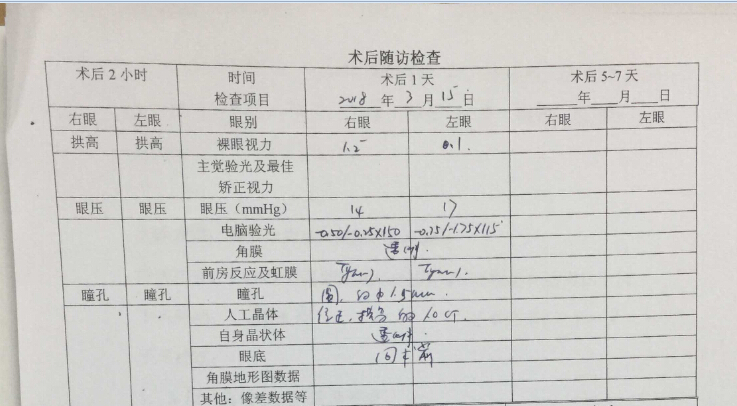 术后随访检查
术后 2 小时 时间 术后 1 天 术后 5~7 天
检查项目 2018 年 3 月 15 日 年 月 日
右眼 左眼 眼别 右眼 左眼 右眼 左眼
拱高 拱高 裸眼视力 1.2 0.1
主觉验光及最佳
矫正视力
眼压 眼压 眼压（mmHg） 14 17
电脑验光 -0.50/-0.25×150 -0.75/-1.75×115
角膜 透明
前房反应及虹膜 Tyn(-) Tyn(-)
瞳孔 瞳孔 瞳孔 圆,
人工晶体 位正, 拱高
自身晶状体 透明
眼底 同术前
角膜地形图数据
其他：像差数据等